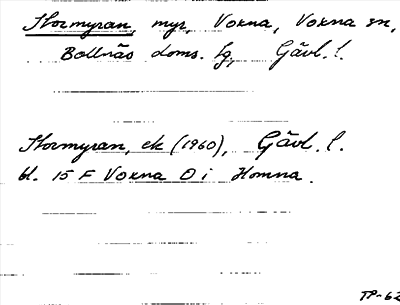 Stormyran, myr, Voxna, Voxna sn,
Bollnäs doms. fg, Gävl. l.
Stormyran, ek (1960), Gävl. l.
bl. 15 F Voxna Ö i Homna.
TP-62